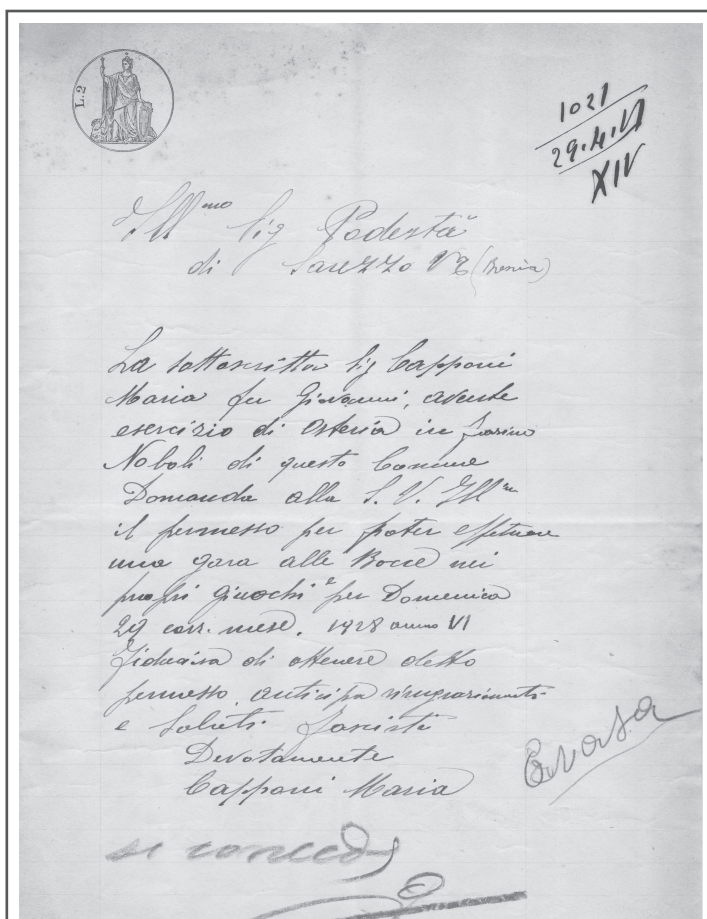 L. 2
1021
29.4.VI
XIV
Ill.mo Sig Podestà
di Sarezzo VT (Brescia)
La sottoscritta Sig Capponi
Maria fu Giovanni, avente
esercizio di Osteria in
Noboli di questo Comune
Domanda alla S. V. Ill.ma
il permesso per poter effetuare
una gara alle Bocce nei
propri giuochi per Domenica
29 corr. mese. 1928 anno VI
Fiduciosa di ottenere detto
permesso anticipa ringraziamenti
e Saluti fascisti
Devotamente
Capponi Maria
Evasa
si concede